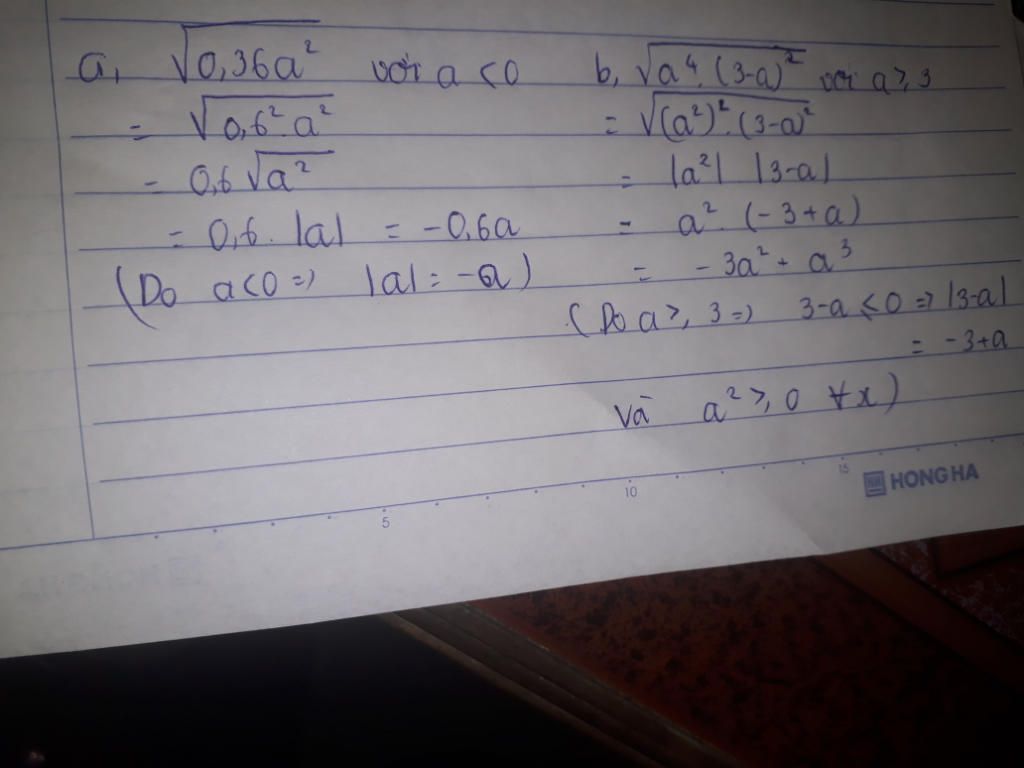 a, √0,36a² với a < 0
= √0,6².a²
= 0,6√a²
= 0,6.|a| = -0,6a
(Do a<0 => |a| = -a)
b, √a⁴.(3-a)² với a ≥ 3
= √(a²)².(3-a)²
= |a²| |3-a|
= a².(-3+a)
= -3a² + a³
(Do a ≥ 3 => 3-a ≤ 0 => |3-a|
= -3+a
và a² ≥ 0 ∀x)
5
10
15
HONG HA